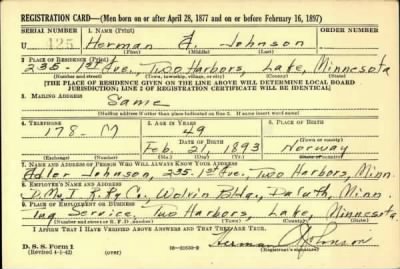 REGISTRATION CARD—(Men born on or after April 28, 1877 and on or before February 16, 1897)
SERIAL NUMBER 1. NAME (Print) ORDER NUMBER
U 425 Herman Johnson
(First) (Middle) (Last)
2. PLACE OF RESIDENCE (Print)
235-1st Ave., Two Harbors, Lake, Minnesota
(Number and street) (Town, township, village, or city) (County) (State)
[THE PLACE OF RESIDENCE GIVEN ON THE LINE ABOVE WILL DETERMINE LOCAL BOARD
JURISDICTION; LINE 2 OF REGISTRATION CERTIFICATE WILL BE IDENTICAL]
3. MAILING ADDRESS
Same
[Mailing address if other than place indicated on line 2. If same insert word same]
4. TELEPHONE 5. AGE IN YEARS 6. PLACE OF BIRTH
178-M 49
DATE OF BIRTH (Town or county)
Feb. 21, 1893 Norway
(Exchange) (Number) (Mo.) (Day) (Yr.) (State or country)
7. NAME AND ADDRESS OF PERSON WHO WILL ALWAYS KNOW YOUR ADDRESS
Adler Johnson, 235-1st Ave., Two Harbors, Minn.
8. EMPLOYER'S NAME AND ADDRESS
D.M. & I. R. Ry Co., Wolvin Bldg., Duluth, Minn.
9. PLACE OF EMPLOYMENT OR BUSINESS
Tug Service, Two Harbors, Lake, Minnesota
(Number and street or R. F. D. number) (Town) (County) (State)
I AFFIRM THAT I HAVE VERIFIED ABOVE ANSWERS AND THAT THEY ARE TRUE.
D. S. S. Form 1
(Revised 4-1-42) (over) Herman Johnson
(Registrant's signature)